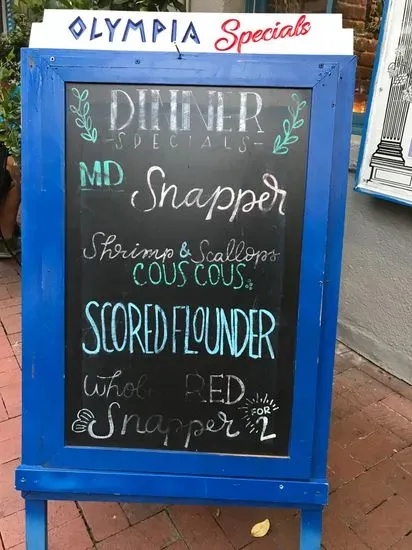 OLYMPIA Specials
DINNER
SPECIALS
MD
Snapper
Shrimp & Scallops
COUS COUS
SCORED FLOUNDER
Whole RED
Snapper FOR 2